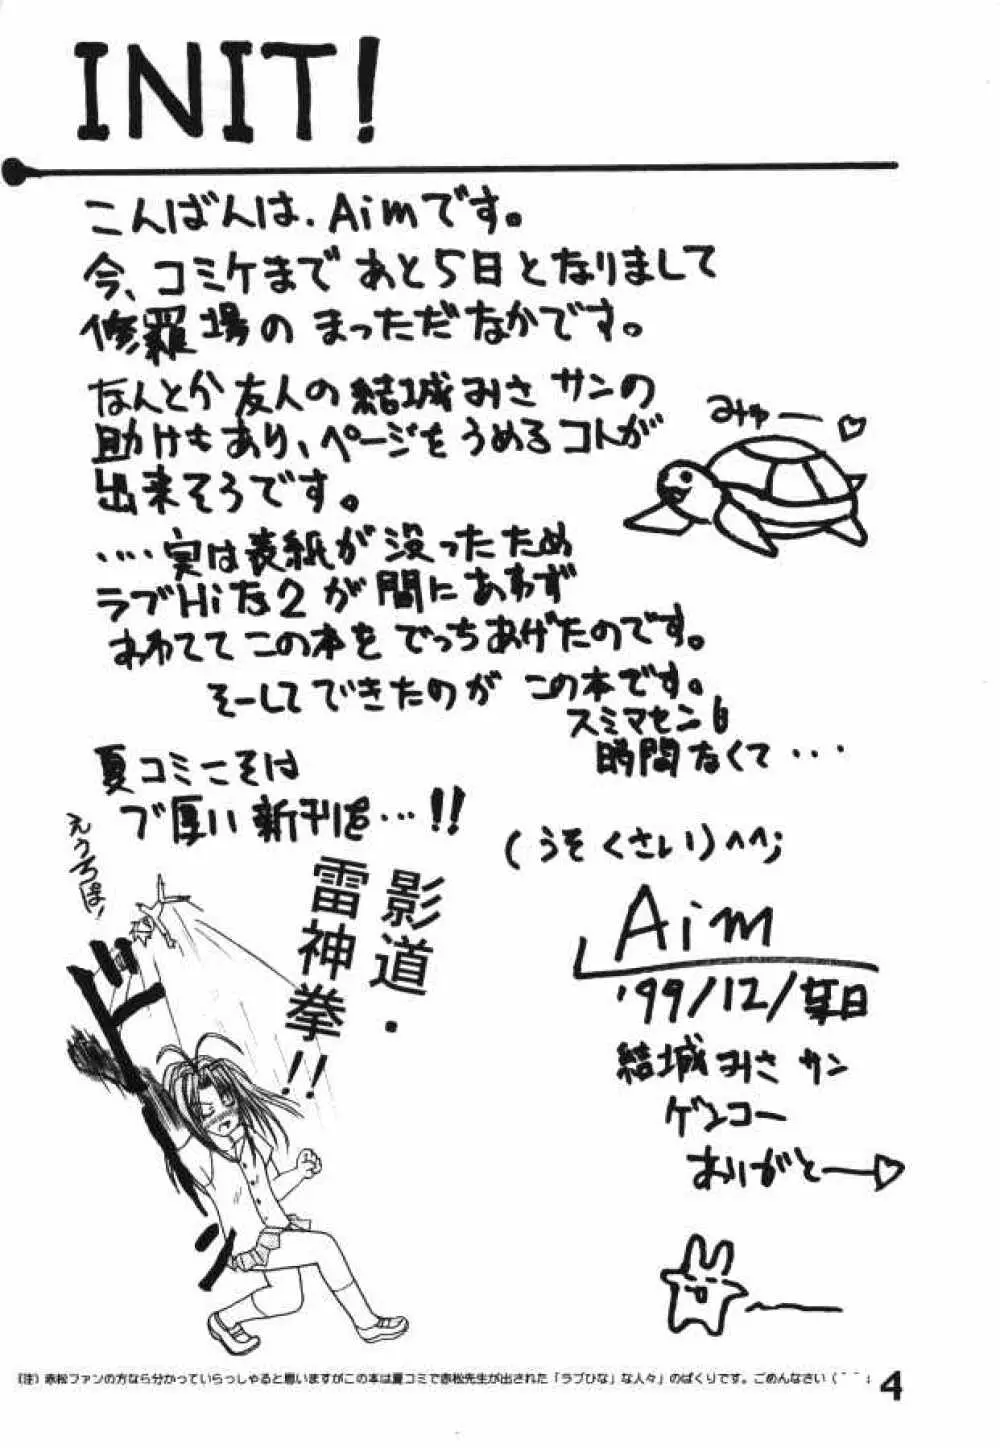 INIT!
こんばんは、Aimです。
今、コミケまであと5日となりまして
修羅場のまっただなかです。
なんとか友人の結城みさサンの
助けもあり、ページをうめるコトが
出来そうです。
みゅー♡
‥‥実は表紙が没ったため
ラブHiな2が間にあわず
あわててこの本をでっちあげたのです。
そーしてできたのがこの本です。
スミマセン
時間なくて・・・
夏コミこそは
ブ厚い新刊を…!!
(うそくさい)^^;
えうろぱ!
影道・
雷神拳!!
ドーン
Aim
'99/12/某日
結城みさサン
ゲンコー
ありがとー♡
(注)赤松ファンの方なら分かっていらっしゃると思いますがこの本は夏コミで赤松先生が出された「ラブひな」な人々」のぱくりです。ごめんなさい(^^;
4